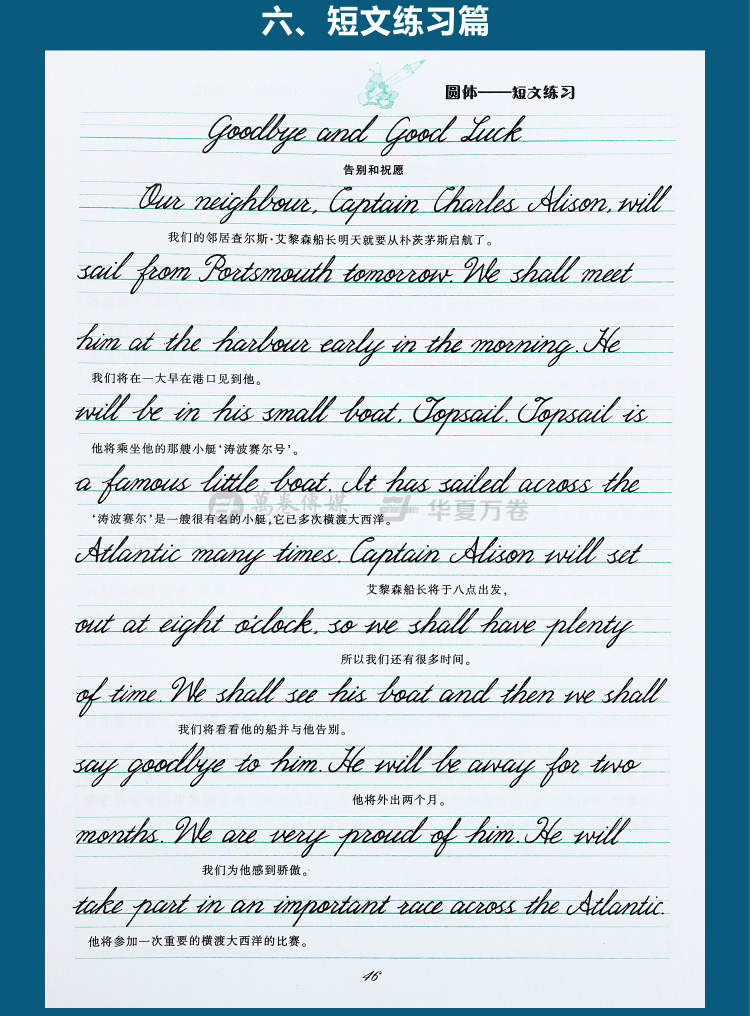 六、短文练习篇
圆体——短文练习
Goodbye and Good Luck
告别和祝愿
Our neighbour, Captain Charles Alison, will
我们的邻居查尔斯·艾黎森船长明天就要从朴茨茅斯启航了。
sail from Portsmouth tomorrow. We shall meet
him at the harbour early in the morning. He
我们将在一大早在港口见到他。
will be in his small boat, Topsail. Topsail is
他将乘坐他的那艘小艇‘涛波赛尔号’。
a famous little boat. It has sailed across the
萬卷傳媒 华夏万卷
‘涛波赛尔’是一艘很有名的小艇,它已多次横渡大西洋。
Atlantic many times. Captain Alison will set
艾黎森船长将于八点出发,
out at eight o'clock, so we shall have plenty
所以我们还有很多时间。
of time. We shall see his boat and then we shall
我们将看看他的船并与他告别。
say goodbye to him. He will be away for two
他将外出两个月。
months. We are very proud of him. He will
我们为他感到骄傲。
take part in an important race across the Atlantic.
他将参加一次重要的横渡大西洋的比赛。
46